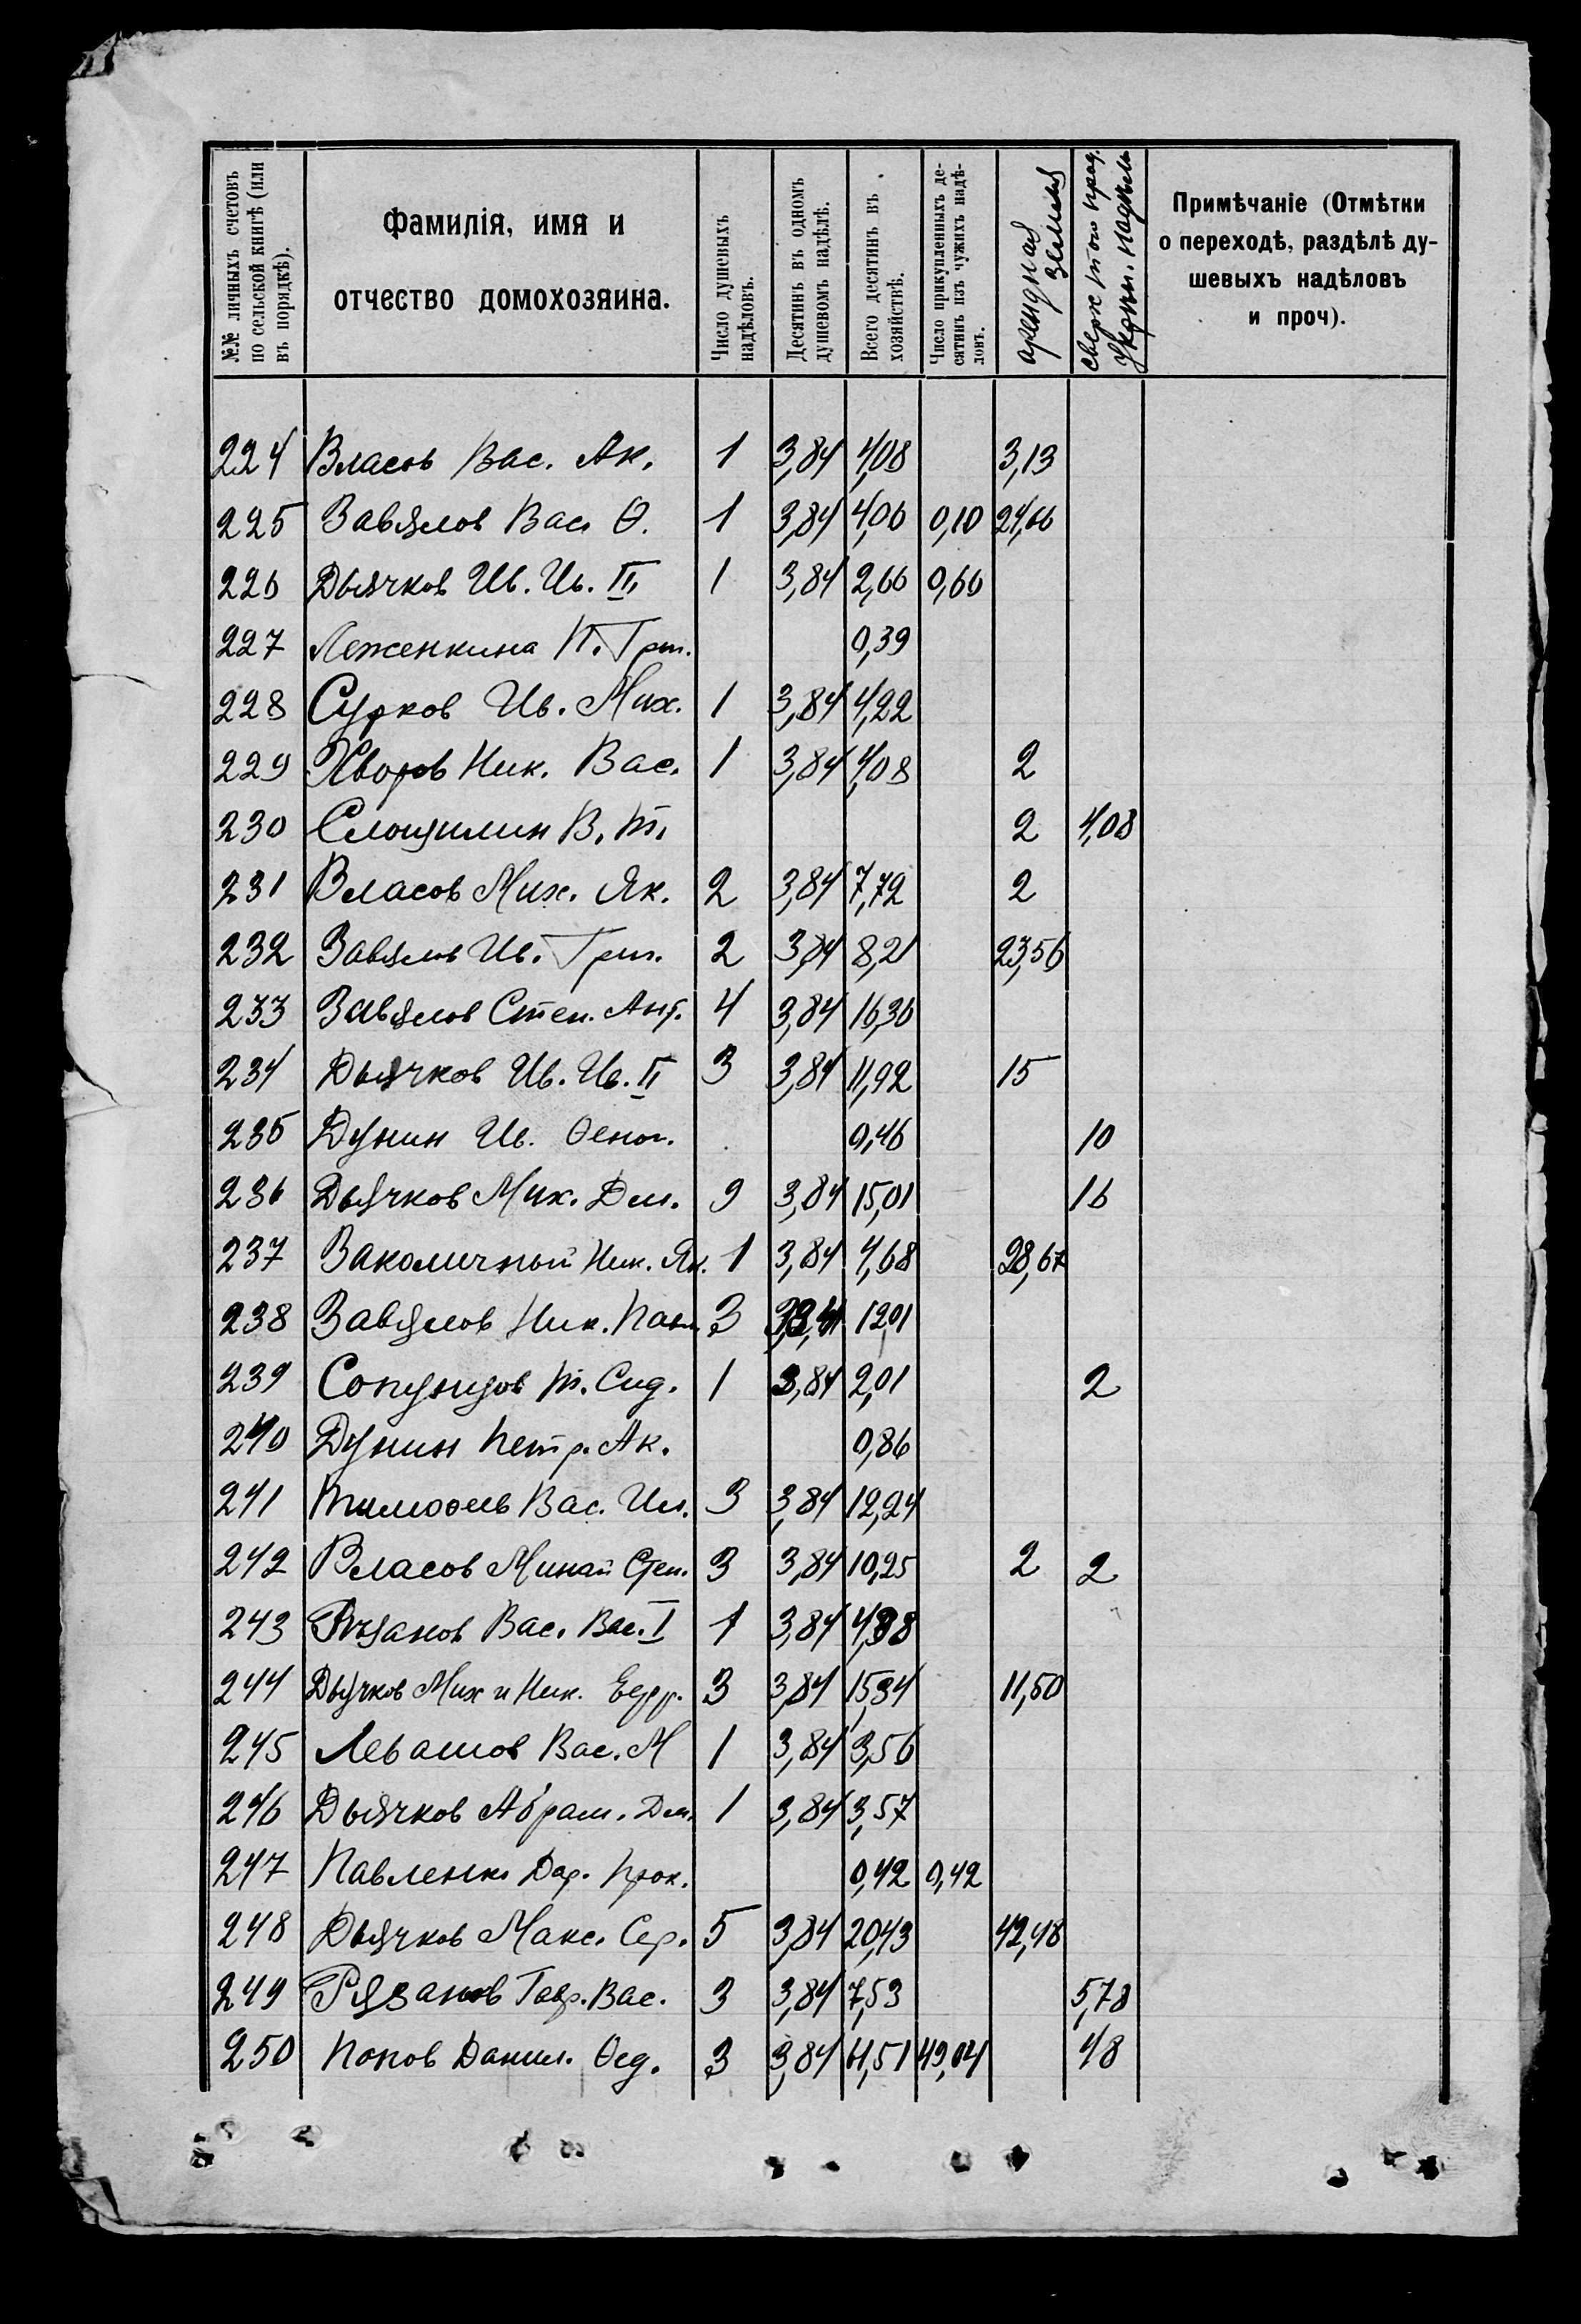 №№ личныхъ счетовъ по сельской книгѣ (или въ порядкѣ).
Фамилія, имя и отчество домохозяина.
Число душевыхъ надѣловъ.
Десятинъ въ одномъ душевомъ надѣлѣ.
Всего десятинъ въ хозяйствѣ.
Число прикупленныхъ десятинъ изъ чужихъ надѣловъ.
арендная земля
сверх того
Примѣчаніе (Отмѣтки о переходѣ, раздѣлѣ душевыхъ надѣловъ и проч).
224 Власов Вас. Ак. 1 3,84 4,08 3,13
225 Завялов Вас. Ѳ. 1 3,84 4,06 0,10 24,66
226 Дьячков Ив. Ив. III 1 3,84 2,66 0,66
227 Леженкина П. Григ. 0,39
228 Сурков Ив. Мих. 1 3,84 4,22
229 Хворов Ник. Вас. 1 3,84 4,08 2
230 Слощилин В. Т. 2 4,08
231 Власов Мих. Як. 2 3,84 7,72 2
232 Завялов Ив. Григ. 2 3,84 8,21 23,56
233 Завялов Степ. Ант. 4 3,84 16,36
234 Дьячков Ив. Ив. II 3 3,84 11,92 15
235 Дунин Ив. 0,46 10
236 Дьячков Мих. Дм. 9 3,84 15,01 16
237 Ник. Як. 1 3,84 4,68 28,67
238 Завялов Ник. Павл. 3 12,01
239 Сопунцов Т. Сид. 1 3,84 2,01 2
240 Дунин Петр. Ак. 0,86
241 Тимофеев Вас. Ил. 3 3,84 12,24
242 Власов Минай Степ. 3 3,84 10,25 2 2
243 Рязанов Вас. Вас. I 1 3,84
244 Дьячков Мих и Ник. 3 3,84 15,34 11,50
245 Левашов Вас. М 1 3,84 3,56
246 Дьячков Абрам. Дм. 1 3,84 3,57
247 Павленко Дар. Прок. 0,42 0,42
248 Дьячков Макс. Сер. 5 3,84 20,43 42,48
249 Рязанов Гавр. Вас. 3 3,84 7,53 5,78
250 Попов Данил. Ѳед. 3 3,84 61,51 49,04 48